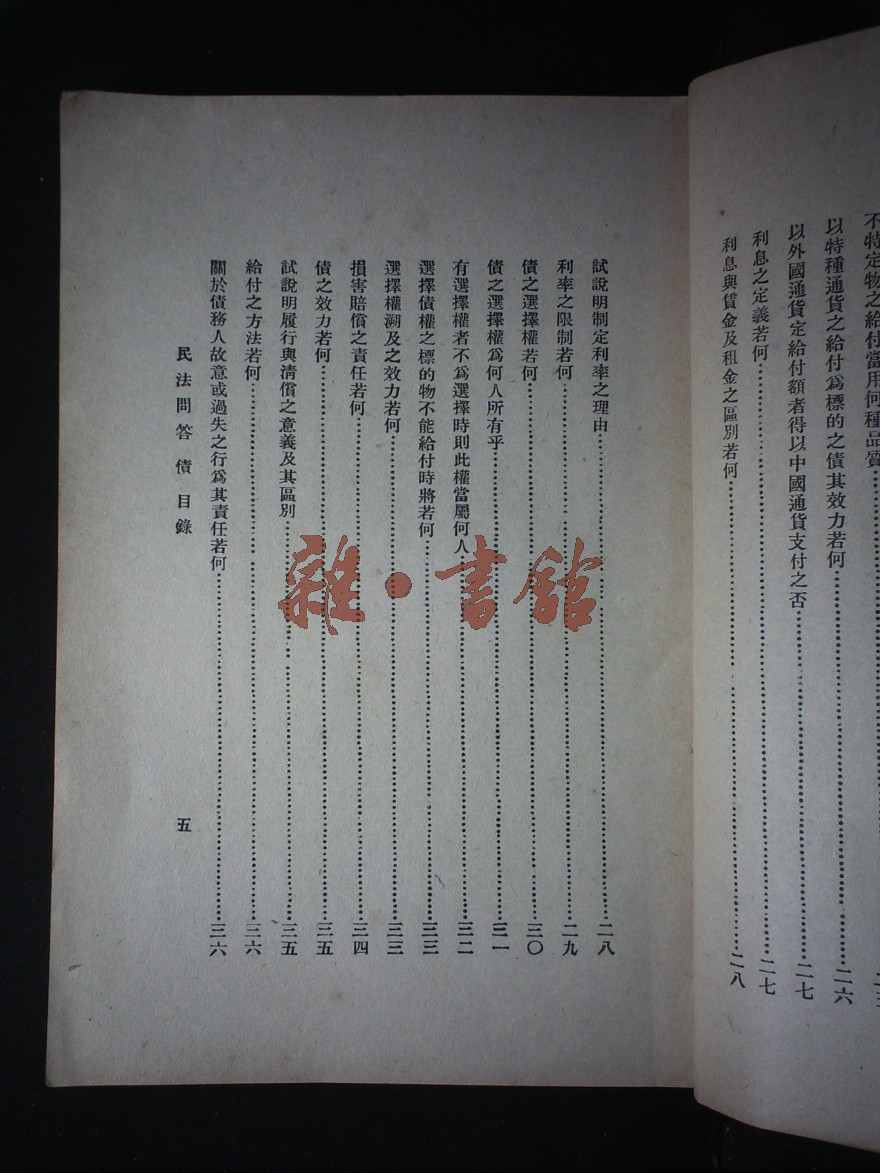 不特定物之給付當用何種品質
以特種通貨之給付爲標的之債其效力若何……二六
以外國通貨定給付額者得以中國通貨支付之否……二七
利息之定義若何……二七
利息與賃金及租金之區別若何……二八
試說明制定利率之理由……二八
利率之限制若何……二九
債之選擇權若何……三〇
債之選擇權爲何人所有乎……三一
有選擇權者不爲選擇時則此權當屬何人……三二
選擇債權之標的物不能給付時將若何……三三
選擇權溯及之效力若何……三三
損害賠償之責任若何……三四
債之效力若何……三五
試說明履行與淸償之意義及其區別……三五
給付之方法若何……三六
關於債務人故意或過失之行爲其責任若何……三六
民法問答 債 目錄 五
雜·書館